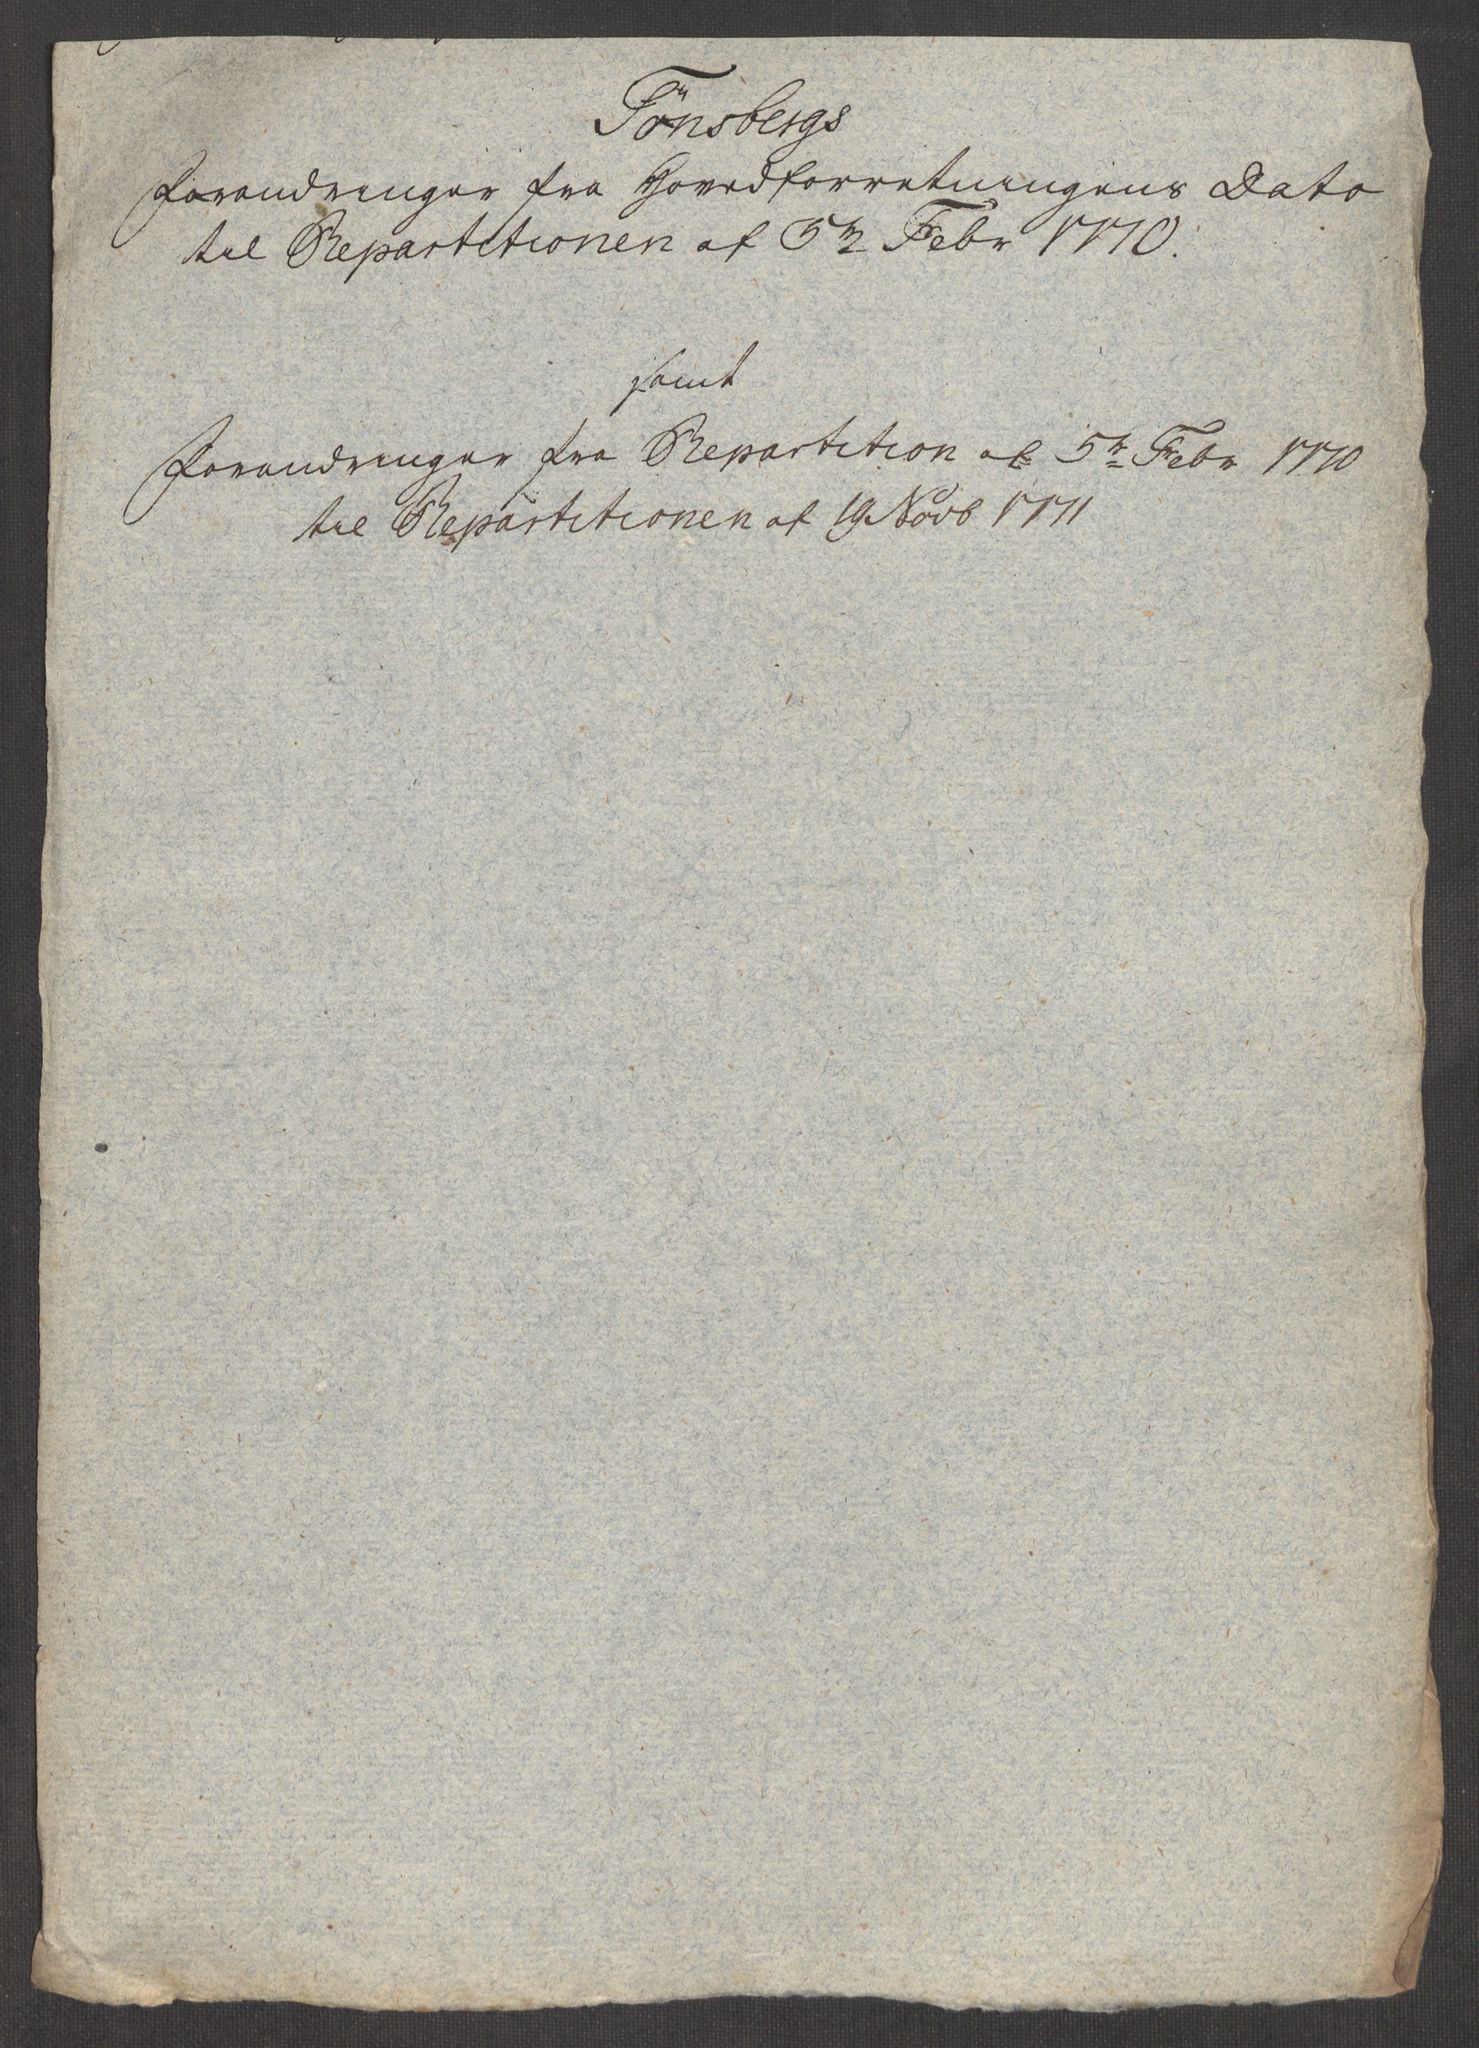 Tönsbergs
Forandringer fra Hovedforretningens Dato
til Repartitionen af 5te Febr 1770.
samt
Forandringer fra Repartition af 5te Febr 1770
til Repartitionen af 19 Novb 1771